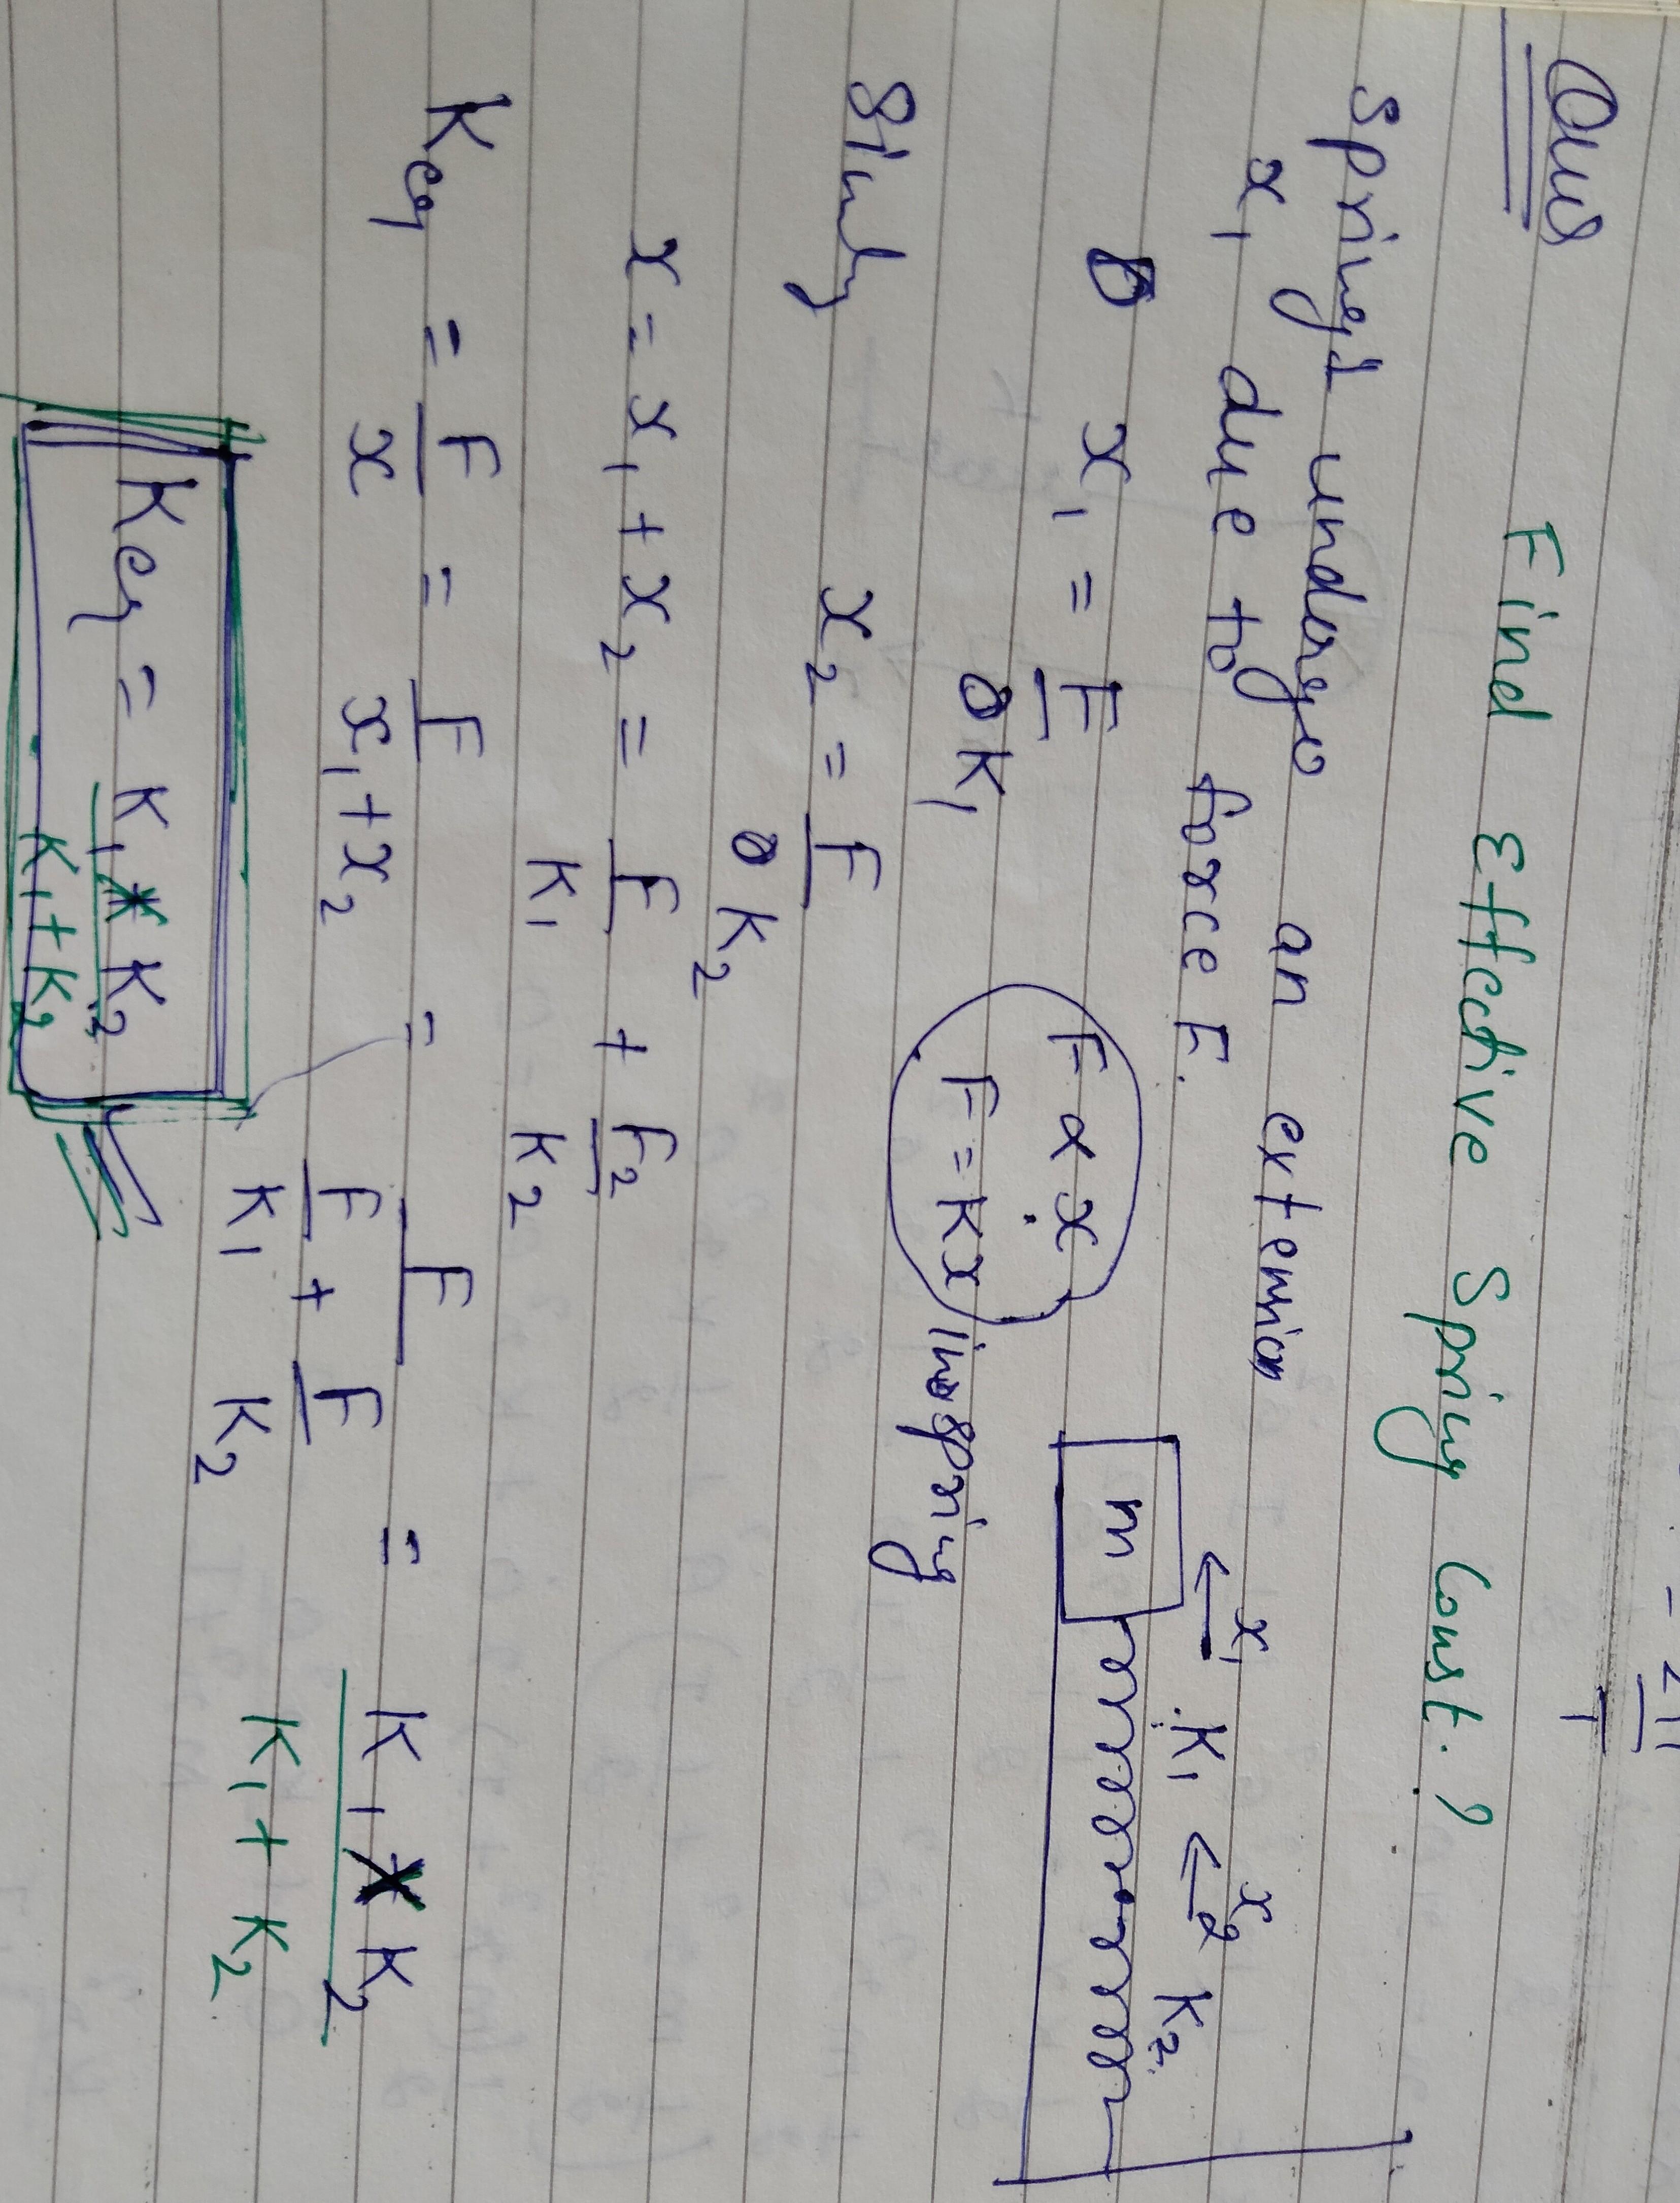 = 2π/T
Ques Find Effective Spring Const.?
Spring 1 undergo an extension
x₁ due to force F.
x₁ K₁ x₂ K₂
m
x₁ = F/K₁
F α x
F = Kx
spring
x₂ = F/K₂
x = x₁ + x₂ = F/K₁ + F₂/K₂
Keq = F/x = F/(x₁+x₂) = F/(F/K₁ + F/K₂) = K₁*K₂/(K₁+K₂)
Keq = K₁*K₂/(K₁+K₂)